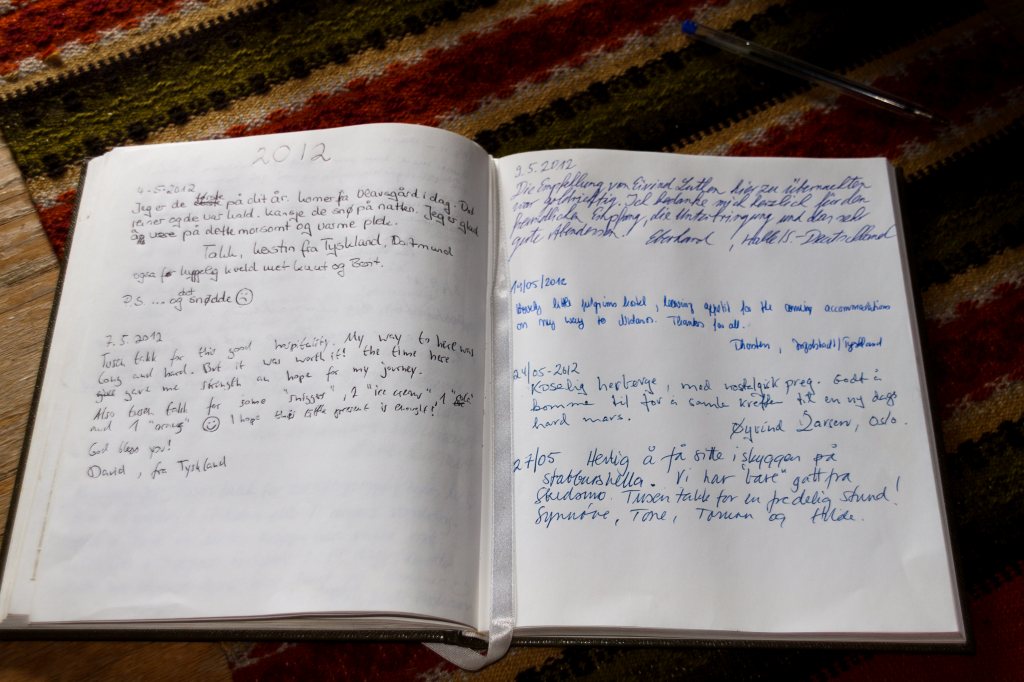 2012
4-5-2012
Jeg er de på dit år. komer fra Olavsgård i dag. Det
reiner og de var kald. kansje de snø på natten. Jeg er glad
på dette morsomt og varme plek.
Takk, kerstin fra Tyskland, Dortmund
også for hyggelig kveld met knut og Berit.
P.S. ... og det snødde
7.5.2012
Tusen takk for this good hospitality. My way to here was
long and hard. But it was worth it! the time here
gave me strength an hope for my journey.
Also tusen takk for some "snigger", 2 "ice cream", 1
and 1 I hope this little present is enought!
God bless you!
David, fra Tyskland
9.5.2012
Die Empfehlung von Eivind Luthen hier zu übernachten
war goldrichtig. Ich bedanke mich herzlich für den
freundlichen Empfang, die Unterbringung und das sehr
gute Abendessen. Eberhard, Halle/S.-Deutschland
14/05/2012
little pilgrims hostel, leaving appetit for the coming accommodations
on my way to Nidaros. Thanks for all.
Thorsten, Ingolstadt/Tyskland
24/05-2012
Koselig herberge, med nostalgisk preg. Godt å
komme til for å samle krefter til en ny dags
hard mars.
Øyvind Larsen, Oslo.
27/05 Herlig å få sitte i skyggen på
stabburshella. Vi har "bare" gått fra
Skidsmo. Tusen takk for en fredelig stund!
Synnøve, Tone, og Hilde.